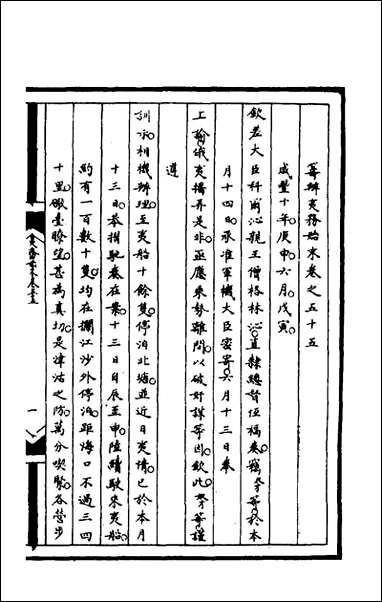 籌辦夷務始末卷之五十五
咸豐十年庚申六月戊寅
欽差大臣科爾沁親王僧格林沁。直隸總督恆福奏竊。奴才等於本
月十四日。承准軍機大臣密寄。六月十三日奉
上諭。俄夷播弄是非。亟應乘勢離間。以破奸謀等因。欽此。奴才等謹
遵
訓示。相機辦理。至夷船十餘隻。停泊北塘。並近日夷情。已於本月
十三日恭摺馳奏在案。十三日自辰至申。陸續駛來夷船
約有一百數十隻。均在攔江沙外停泊。距海口不過三四
十里。礮臺瞭望。甚為真切。是津沽之防。萬分喫緊。各營步
夷務始末卷五十五
一